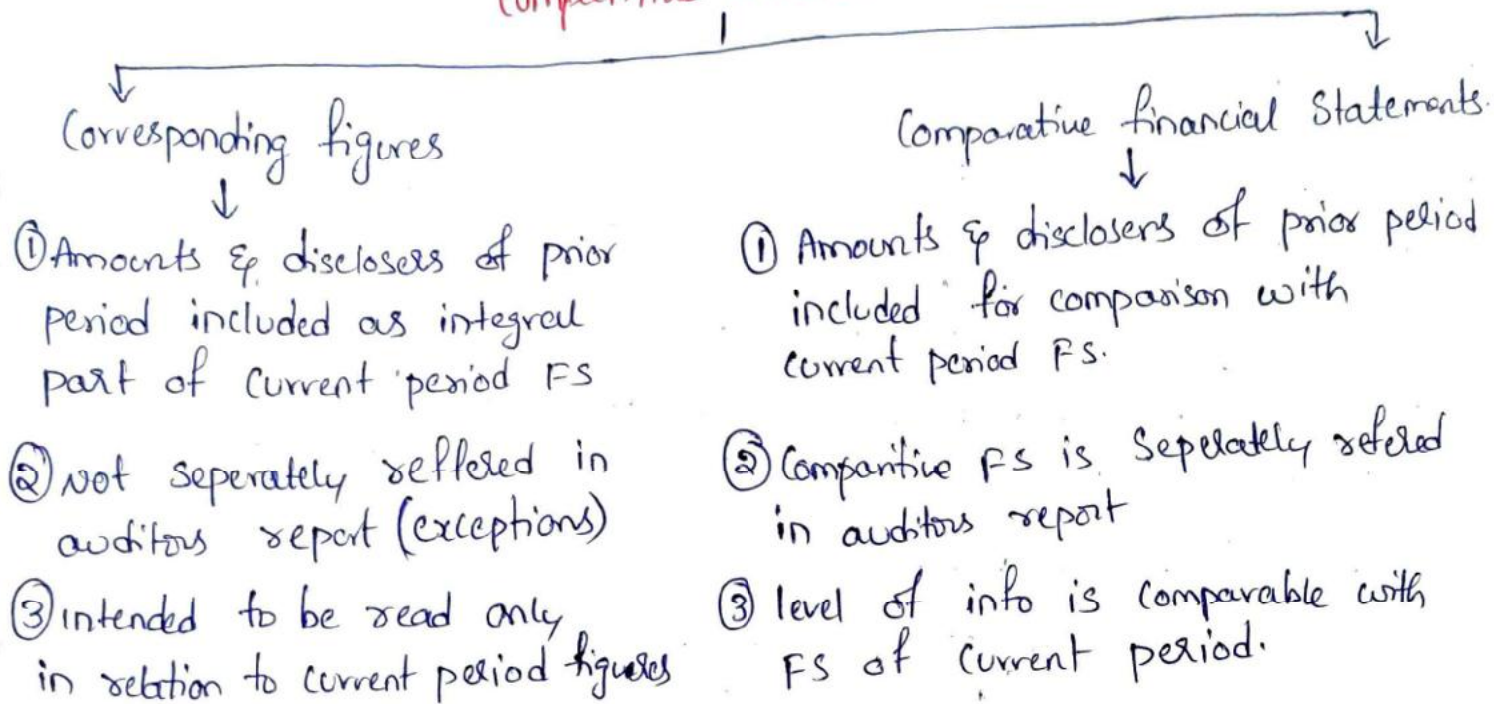 Corresponding figures
① Amounts & disclosers of prior
period included as integral
part of current period FS
② Not seperately reffered in
auditors report (exceptions)
③ intended to be read only
in relation to current period figures
Comparative financial Statements.
① Amounts & disclosers of prior period
included for comparison with
current period FS.
② Comparitive FS is Seperately refered
in auditors report
③ level of info is comparable with
FS of current period.